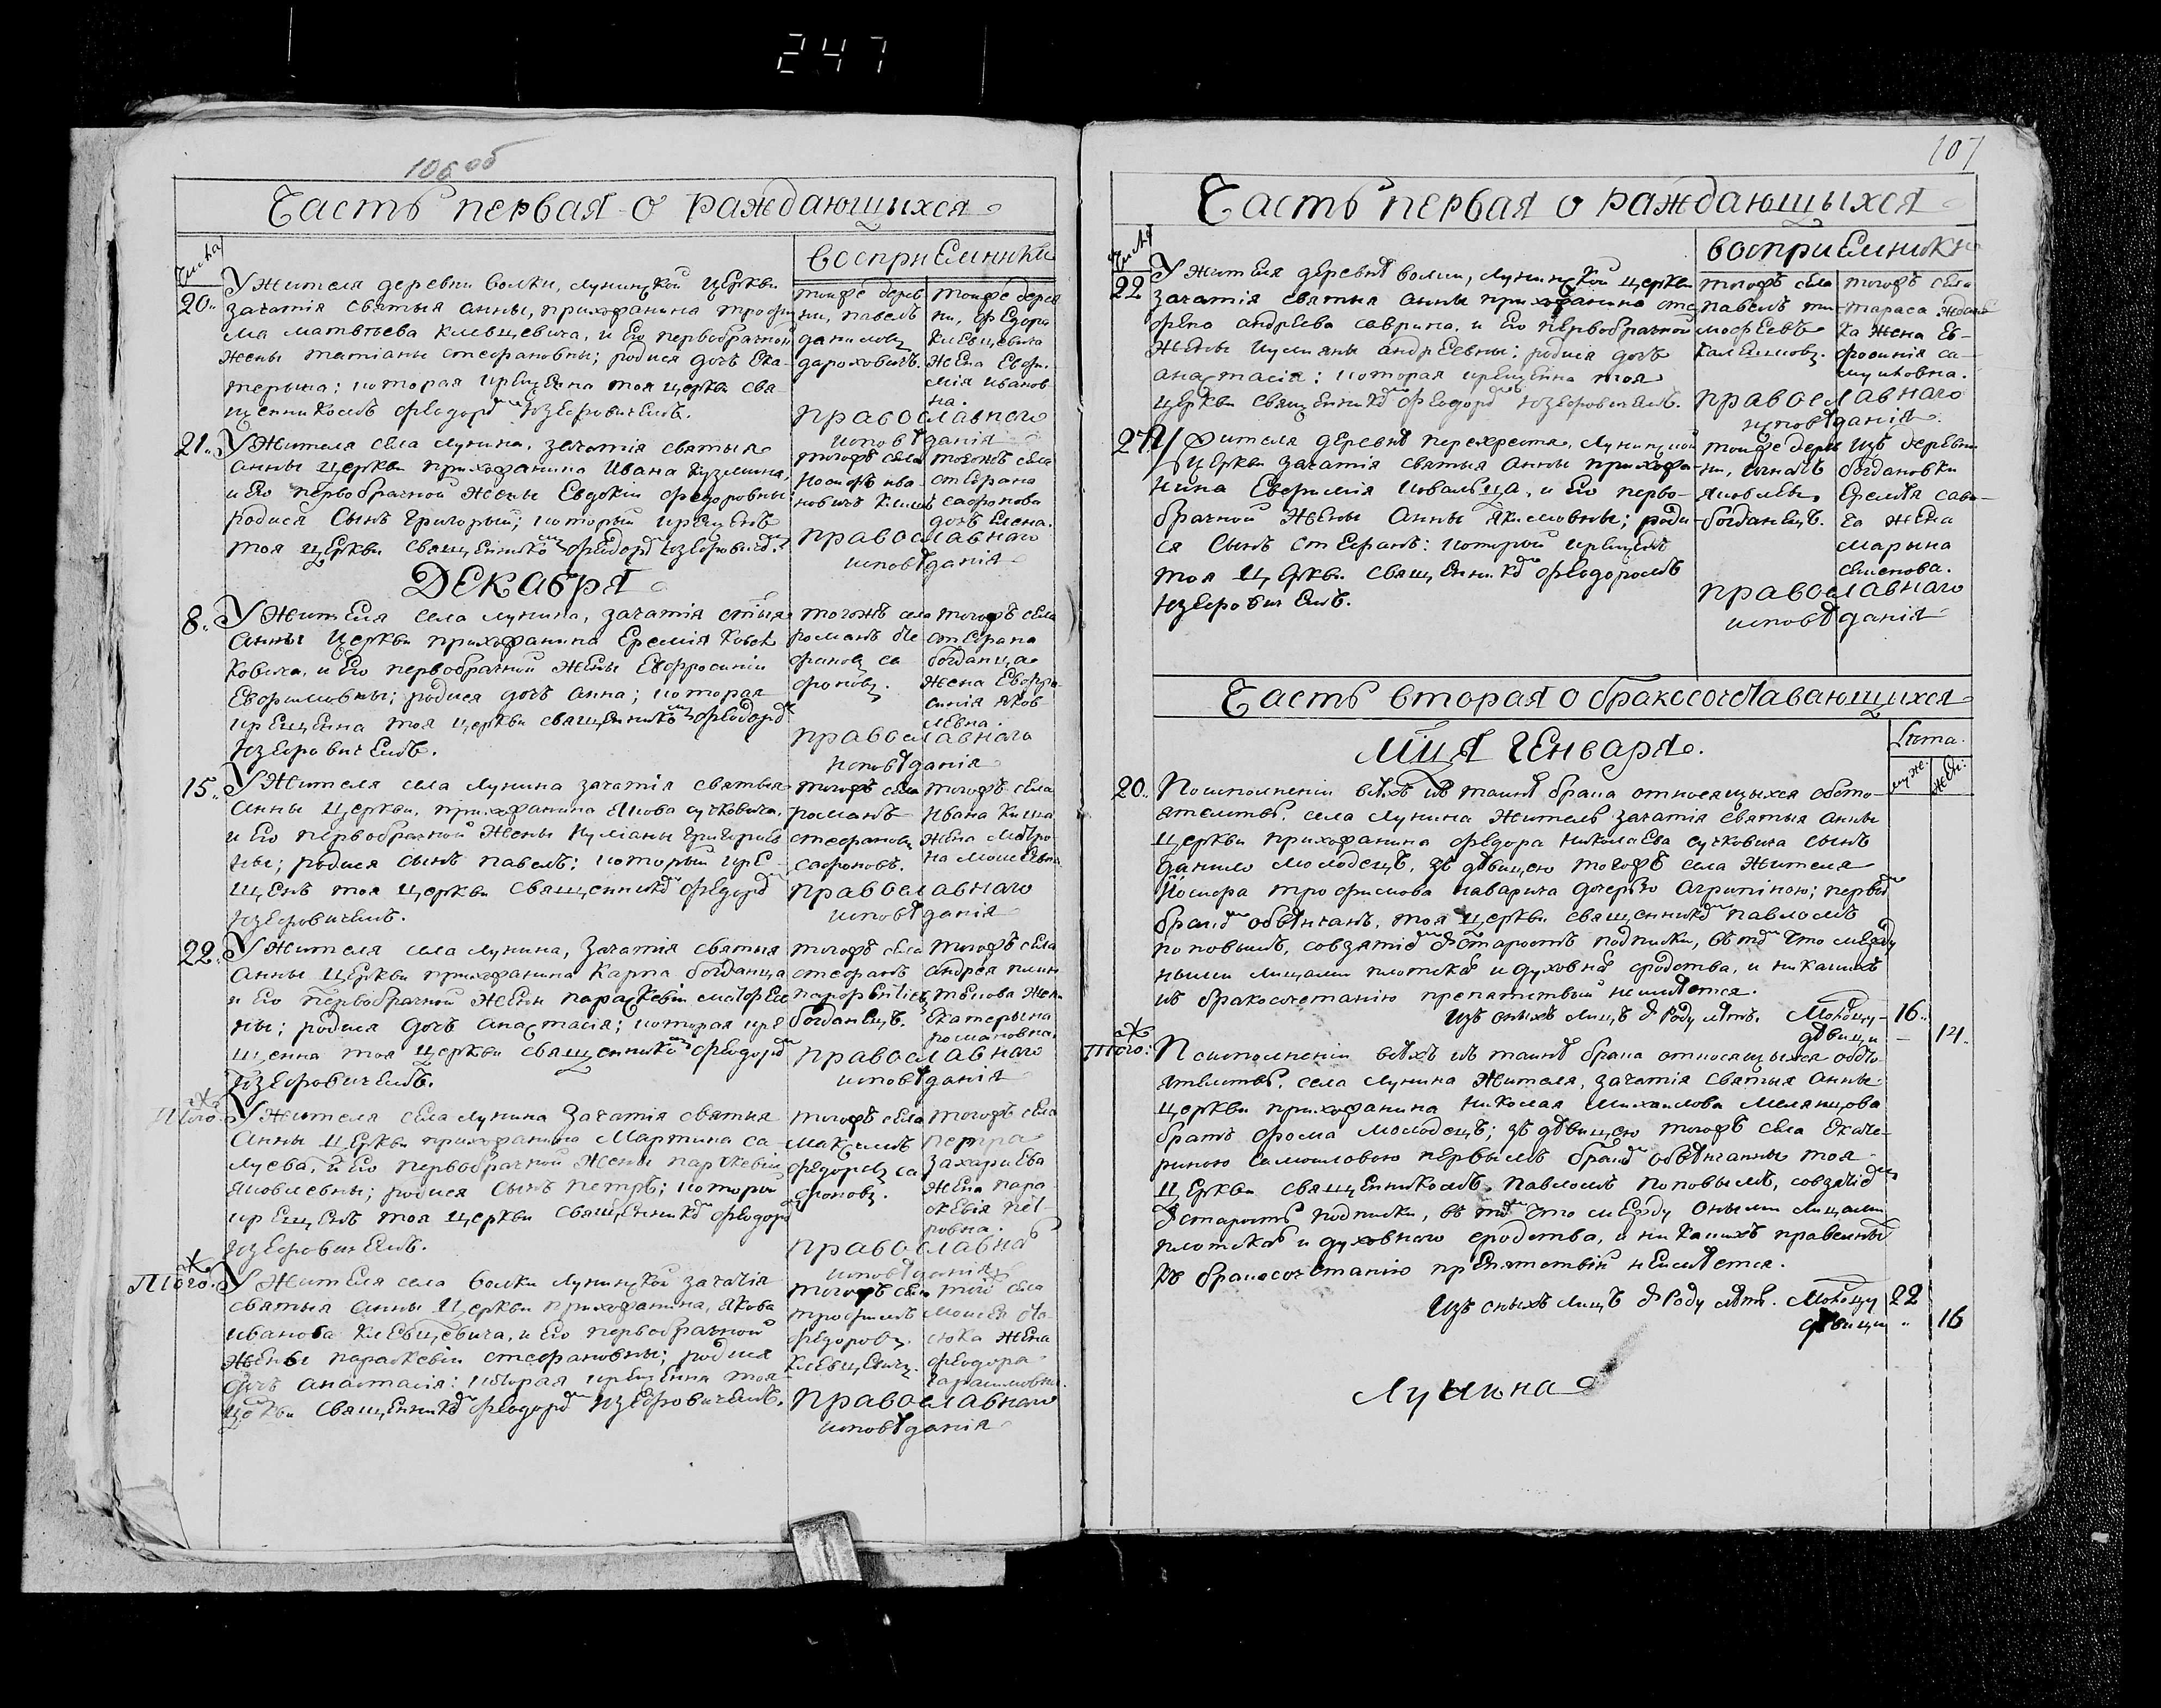 247
106 об
Часть первая о раждающихся
Числа
восприемники
20. У Жителя деревни волки, лунинской Церкви
зачатія святыя анны, прихожанина трофи
ма матвѣева клевцевича, и Его первобрачной
жены татіаны стефановны; родися дочь Ека-
терына: которая крещенна тоя церкви свя-
щенникомъ феодоромъ Юзефовичемъ.
тоиже дерев
ни, павелъ
данилов
дароховичъ.
тоиже дерев
ни, федора
клевцевича
жена Евфи-
мія иванов
на.
православнаго
исповѣданія
21. У Жителя села лунина, зачатія святыя
анны церкви прихожанина Ивана кузмина,
и Его первобрачной жены Евдокіи федоровны
родися Сынъ григорый; который крещенъ
тоя церкви священникомъ федоромъ Юзефовичемъ.
тогожъ села
иосифъ ива-
новичъ
тогожъ села
стефана
сафонова
дочь Елена.
православнаго
исповѣданія
Декабря
8. У Жителя села лунина, зачатія стыя
Анны Церкви прихожанина Еремія
ковича, и Его первобрачной жены Евфросиніи
Евфимовны; родися дочь анна; которая
крещенна тоя церкви священникомъ феодоромъ
Юзефовичемъ.
тогожъ села
романъ сте
фанов са
фонов.
тогожъ села
стефана
богданца
жена Евфро
синія яков
левна.
православнаго
исповѣданія
15. У Жителя села лунина зачатія святыя
Анны церкви, прихожанина Якова сучковича,
и Его первобрачной жены Иуліаны григориев
ны; родися сынъ павелъ: который кре-
щенъ тоя церкви священникомъ федоромъ
Юзефовичемъ.
тогожъ села
романъ
стефанов
сафоновъ.
тогожъ села
Ивана
жена матро
на моисеевна
православнаго
исповѣданія
22. У Жителя села лунина, зачатія святыя
Анны церкви прихожанина карпа богданца
и Его первобрачной жены параскевіи матфее
ны; родися дочь анастасія; которая кре
щенна тоя церкви священникомъ феодоромъ
Юзефовичемъ.
тогожъ села
стефанъ
парфентіев
богданецъ.
тогожъ села
андрея
жена
екатерына
романовна.
православнаго
исповѣданія
Тогож. У Жителя села лунина зачатія святыя
Анны церкви прихожанина Мартина са-
луева, и Его первобрачной жены параскевіи
яковлевны; родися Сынъ петръ; которы
крещенъ тоя церкви священникомъ феодоромъ
Юзефовичемъ.
тогожъ села
максимъ
федоров са
фонов.
тогожъ села
петра
захариева
жена пара
скевія пет
ровна.
православнаго
исповѣданія
Тогож. У Жителя села волки лунинской зачатія
святыя анны церкви прихожанина, якова
иванова клевцевича, и Его первобрачной
жены параскевіи стефановны; родися
дочь анастасія: которая крещенна тоя
церкви священникомъ феодоромъ Юзефовичемъ.
тогожъ села
трофимъ
федоров
клевцевич.
того села
моисея
жена
феодора
гарасимовна.
православнаго
исповѣданія
107
Часть первая о раждающыхся
Числа
восприемники
22 У Жителя деревнѣ волки, лунинской церкви
зачатія святыя анны прихожанина сте
фена андреева саврина, и Его первобрачной
жены иулияны андреевны; родися дочь
анастасія: которая крещенна тоя
церкви священникомъ феодоромъ Юзефовичемъ.
тогожъ села
павелъ ти
мофеевъ
тогожъ села
тараса
ка жена Ев-
фросинія са-
муиловна.
православнаго
исповѣданія.
27 У жителя деревнѣ перехреста, лунинской
церкви зачатія святыя анны прихожа-
нина Евфимія ковальца, и Его перво-
брачной жены Анны якимовны; роди
ся Сынъ стефанъ: который крещенъ
тоя церкви священникомъ феодоромъ
Юзефовичемъ.
тоиже дерев
ни, игнатъ
яковлевъ
богданецъ.
изъ деревни
богдановки
еремѣя сав-
ча жена
марына
семенова.
православнаго
исповѣданія
Часть вторая о бракосочетавающихся
Мца Генваря.
Лѣта.
муж. жен:
20. По исполненіи всѣхъ къ таинѣ брака относящихся обсто-
ятелствъ, села лунина житель зачатія святыя анны
церкви прихожанина федора николаева сучковича сынъ
данило молодецъ, зъ дѣвицею тогожъ села жителя
Иосифа трофимова наварича дочерью агрипиною; первымъ
бракомъ обвѣнчанъ, тоя церкви священникомъ павломъ
поповымъ, совзятіемъ старостъ подписки, въ томъ что между
ными лицами плотскаго и духовнаго сродства, и никакихъ
къ бракосочетанію препятствий неимѣется.
Изъ оныхъ лицъ ѿ роду лѣтъ. Молодцу - 16.
дѣвици - 14.
Тогож. По исполненіи всѣхъ къ таинѣ брака относящыхся обсто-
ятелствъ, села лунина жителя, зачатія святыя анны
церкви прихожанина николая михаилова мелянцова
братъ фома молодецъ; зъ дѣвицею тогожъ села екате-
риною самоиловою первымъ бракомъ обвѣнчанны тоя
церкви священникомъ павломъ поповымъ, совзятіемъ
старостъ подписки, въ томъ что между оными лицами
плотскаго и духовнаго сродства, и никакихъ правелныхъ
къ бракосочетанію препятствій неимѣется.
Изъ оныхъ лицъ ѿ роду лѣтъ. Молодцу 22
дѣвици " 16
Лунина